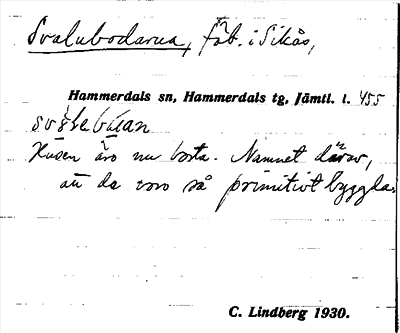 Svalubodarna, fäb. i Sikås,
Hammerdals sn, Hammerdals tg, Jämtl. l. 455
Husen äro nu borta. Namnet därav,
att de voro så primitivt byggda.
C. Lindberg 1930.